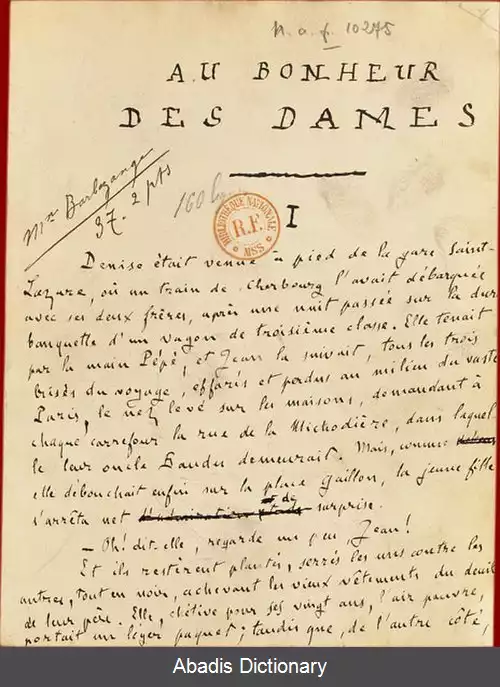 n. a. f. 10275
AU BONHEUR
DES DAMES
Mr Barlazange
37. 2 pts
160
BIBLIOTHÈQUE NATIONALE
R.F.
MSS
I
Denise était venue à pied de la gare Saint-
Lazare, où un train de Cherbourg l'avait débarquée
avec ses deux frères, après une nuit passée sur la dure
banquette d'un wagon de troisième classe. Elle tenait
par la main Pépé, et Jean la suivait, tous les trois
brisés du voyage, effarés et perdus au milieu du vaste
Paris, le nez levé sur les maisons, demandant à
chaque carrefour la rue de la Michodière, dans laquel-
le leur oncle Baudu demeurait. Mais, comme
elle débouchait enfin sur la place Gaillon, la jeune fille
s'arrêta net de surprise.
— Oh! dit-elle, regarde un peu, Jean!
Et ils restèrent plantés, serrés les uns contre les
autres, tout en noir, achevant les vieux vêtements du deuil
de leur père. Elle, chétive pour ses vingt ans, l'air pauvre,
portait un léger paquet; tandis que, de l'autre côté,
Abadis Dictionary